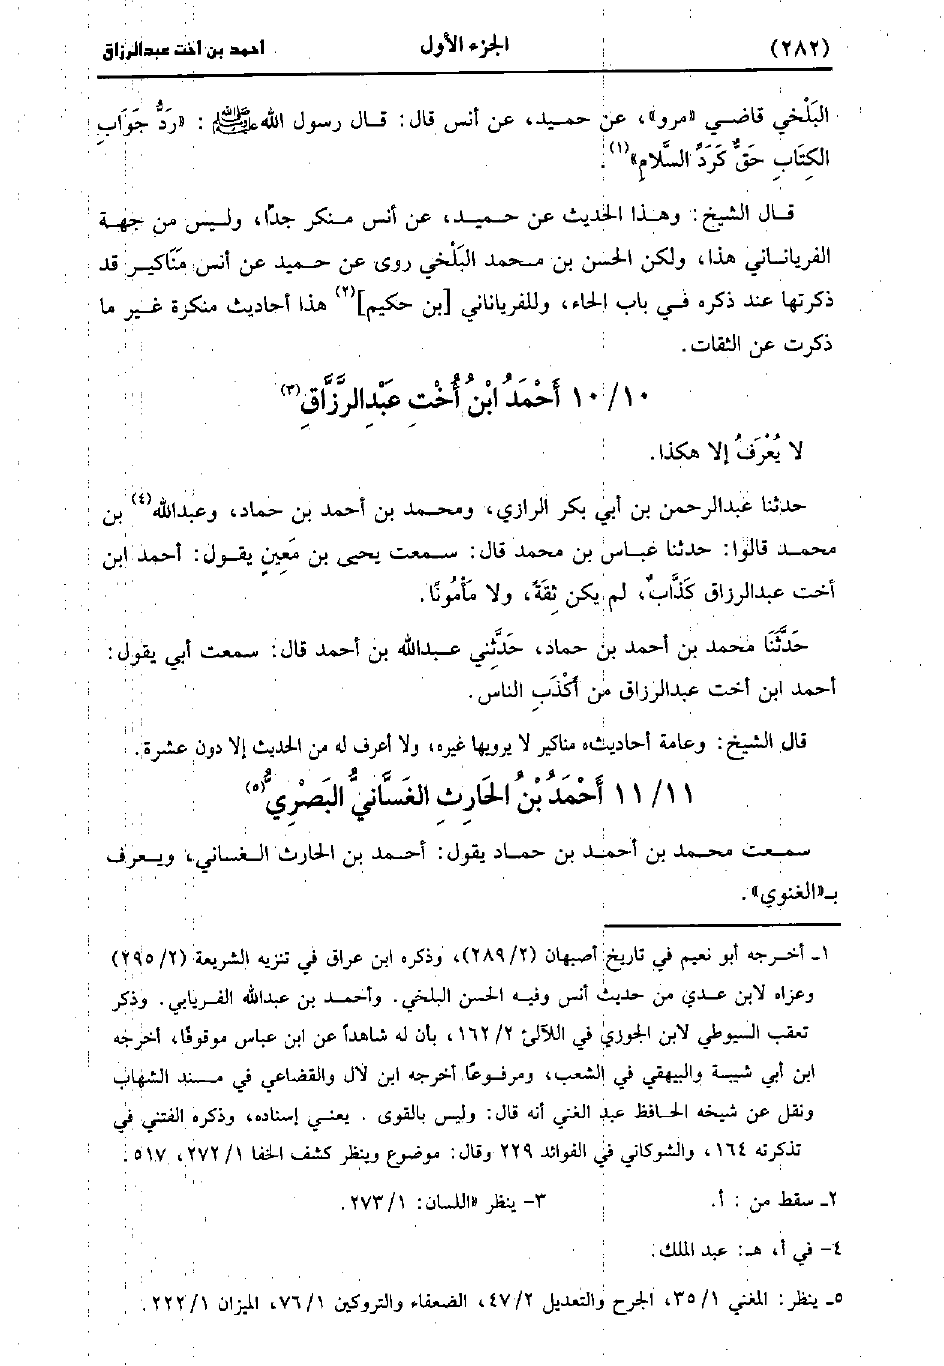 (٢٨٢) الجزء الأول أحمد بن أخت عبدالرزاق
البَلْخي قاضي «مرو»، عن حميد، عن أنس قال: قال رسول الله ﷺ : «ردُّ جَوَابِ
الكِتَابِ حَقٌّ كَرَدِّ السَّلامِ»(١).
قال الشيخ: وهذا الحديث عن حميد، عن أنس منكر جدًا، وليس من جهة
الفرياناني هذا، ولكن الحسن بن محمد البَلْخي روى عن حميد عن أنس مَنَاكير قد
ذكرتها عند ذكره في باب الحاء، وللفرياناني [بن حكيم](٢) هذا أحاديث منكرة غير ما
ذكرت عن الثقات.
١٠/١٠ أَحْمَدُ ابْنُ أُخْتِ عَبْدِالرَّزَّاقِ(٣)
لا يُعْرَفُ إلا هكذا.
حدثنا عبدالرحمن بن أبي بكر الرازي، ومحمد بن أحمد بن حماد، وعبدالله(٤) بن
محمد قالوا: حدثنا عباس بن محمد قال: سمعت يحيى بن مَعِينٍ يقول: أحمد ابن
أخت عبدالرزاق كَذَّابٌ، لم يكن ثِقَةً، ولا مَأمُونًا.
حَدَّثَنَا محمد بن أحمد بن حماد، حَدَّثني عبدالله بن أحمد قال: سمعت أبي يقول:
أحمد ابن أخت عبدالرزاق من أَكْذَبِ الناس.
قال الشيخ: وعامة أحاديثه مناكير لا يرويها غيره، ولا أعرف له من الحديث إلا دون عشرة.
١١/١١ أَحْمَدُ بْنُ الحَارِثِ الغَسَّانيُّ البَصْرِيُّ(٥)
سمعت محمد بن أحمد بن حماد يقول: أحمد بن الحارث الغساني، ويعرف
بـ«الغنوي».
١ـ أخرجه أبو نعيم في تاريخ أصبهان (٢/٢٨٩)، وذكره ابن عراق في تنزيه الشريعة (٢/٢٩٥)
وعزاه لابن عدي من حديث أنس وفيه الحسن البلخي. وأحمد بن عبدالله الفريابي. وذكر
تعقب السيوطي لابن الجوزي في اللآلئ ٢/١٦٢، بأن له شاهداً عن ابن عباس موقوفًا، أخرجه
ابن أبي شيبة والبيهقي في الشعب، ومرفوعًا أخرجه ابن لال والقضاعي في مسند الشهاب
ونقل عن شيخه الحافظ عبد الغني أنه قال: وليس بالقوى . يعني إسناده، وذكره الفتني في
تذكرته ١٦٤، والشوكاني في الفوائد ٢٢٩ وقال: موضوع وينظر كشف الخفا ١/٢٧٢، ٥١٧.
٢ـ سقط من : أ. ٣- ينظر «اللسان: ١/٢٧٣.
٤- في أ، هـ: عبد الملك.
٥ـ ينظر: المغني ١/٣٥، الجرح والتعديل ٢/٤٧، الضعفاء والتروكين ١/٧٦، الميزان ١/٢٢٢.